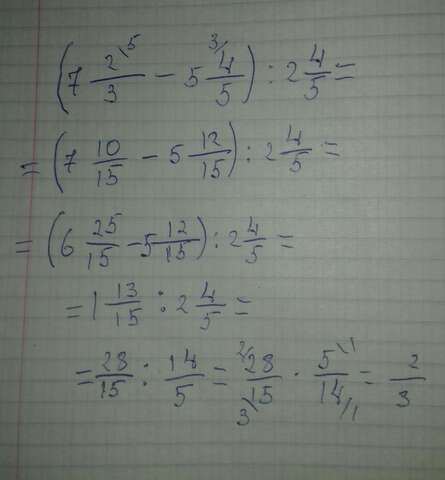 (7 2\5/3 − 5 3/4/5) : 2 4/5 =
= (7 10/15 − 5 12/15) : 2 4/5 =
= (6 25/15 − 5 12/15) : 2 4/5 =
= 1 13/15 : 2 4/5 =
= 28/15 : 14/5 = 2/28/15\3 · 5\1/14/1 = 2/3